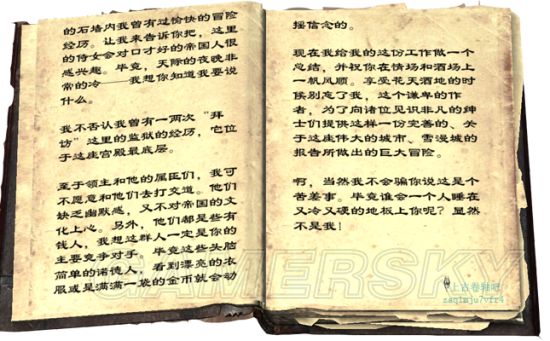 的石墙内我曾有过愉快的冒险
经历。让我来告诉你把，这里
的侍女会对口才好的帝国人很
感兴趣。毕竟，天际的夜晚非
常的冷——我想你知道我要说
什么。
我不否认我曾有一两次“拜
访”这里的监狱的经历，它位
于这座宫殿最底层。
至于领主和他的属臣们，我可
不愿意和他们去打交道。他们
缺乏幽默感，又不对帝国的文
化上心。另外，他们都是些有
钱人，我想这群人一定是你的
主要竞争对手。毕竟这些头脑
简单的诺德人，看到漂亮的衣
服或是满满一袋的金币就会动
摇信念的。
现在我给我的这份工作做一个
总结，并祝你在情场和酒场上
一帆风顺。享受花天酒地的时
候别忘了我，这个谦卑的作
者，为了向诸位见识非凡的绅
士们提供这样一份完善的、关
于这座伟大的城市、雪漫城的
报告所做出的巨大冒险。
啊，当然我不会骗你说这是个
苦差事。毕竟谁会一个人睡在
又冷又硬的地板上你呢？显然
不是我！
GAMERSKY
上古卷轴吧
zaq1mju7vfr4